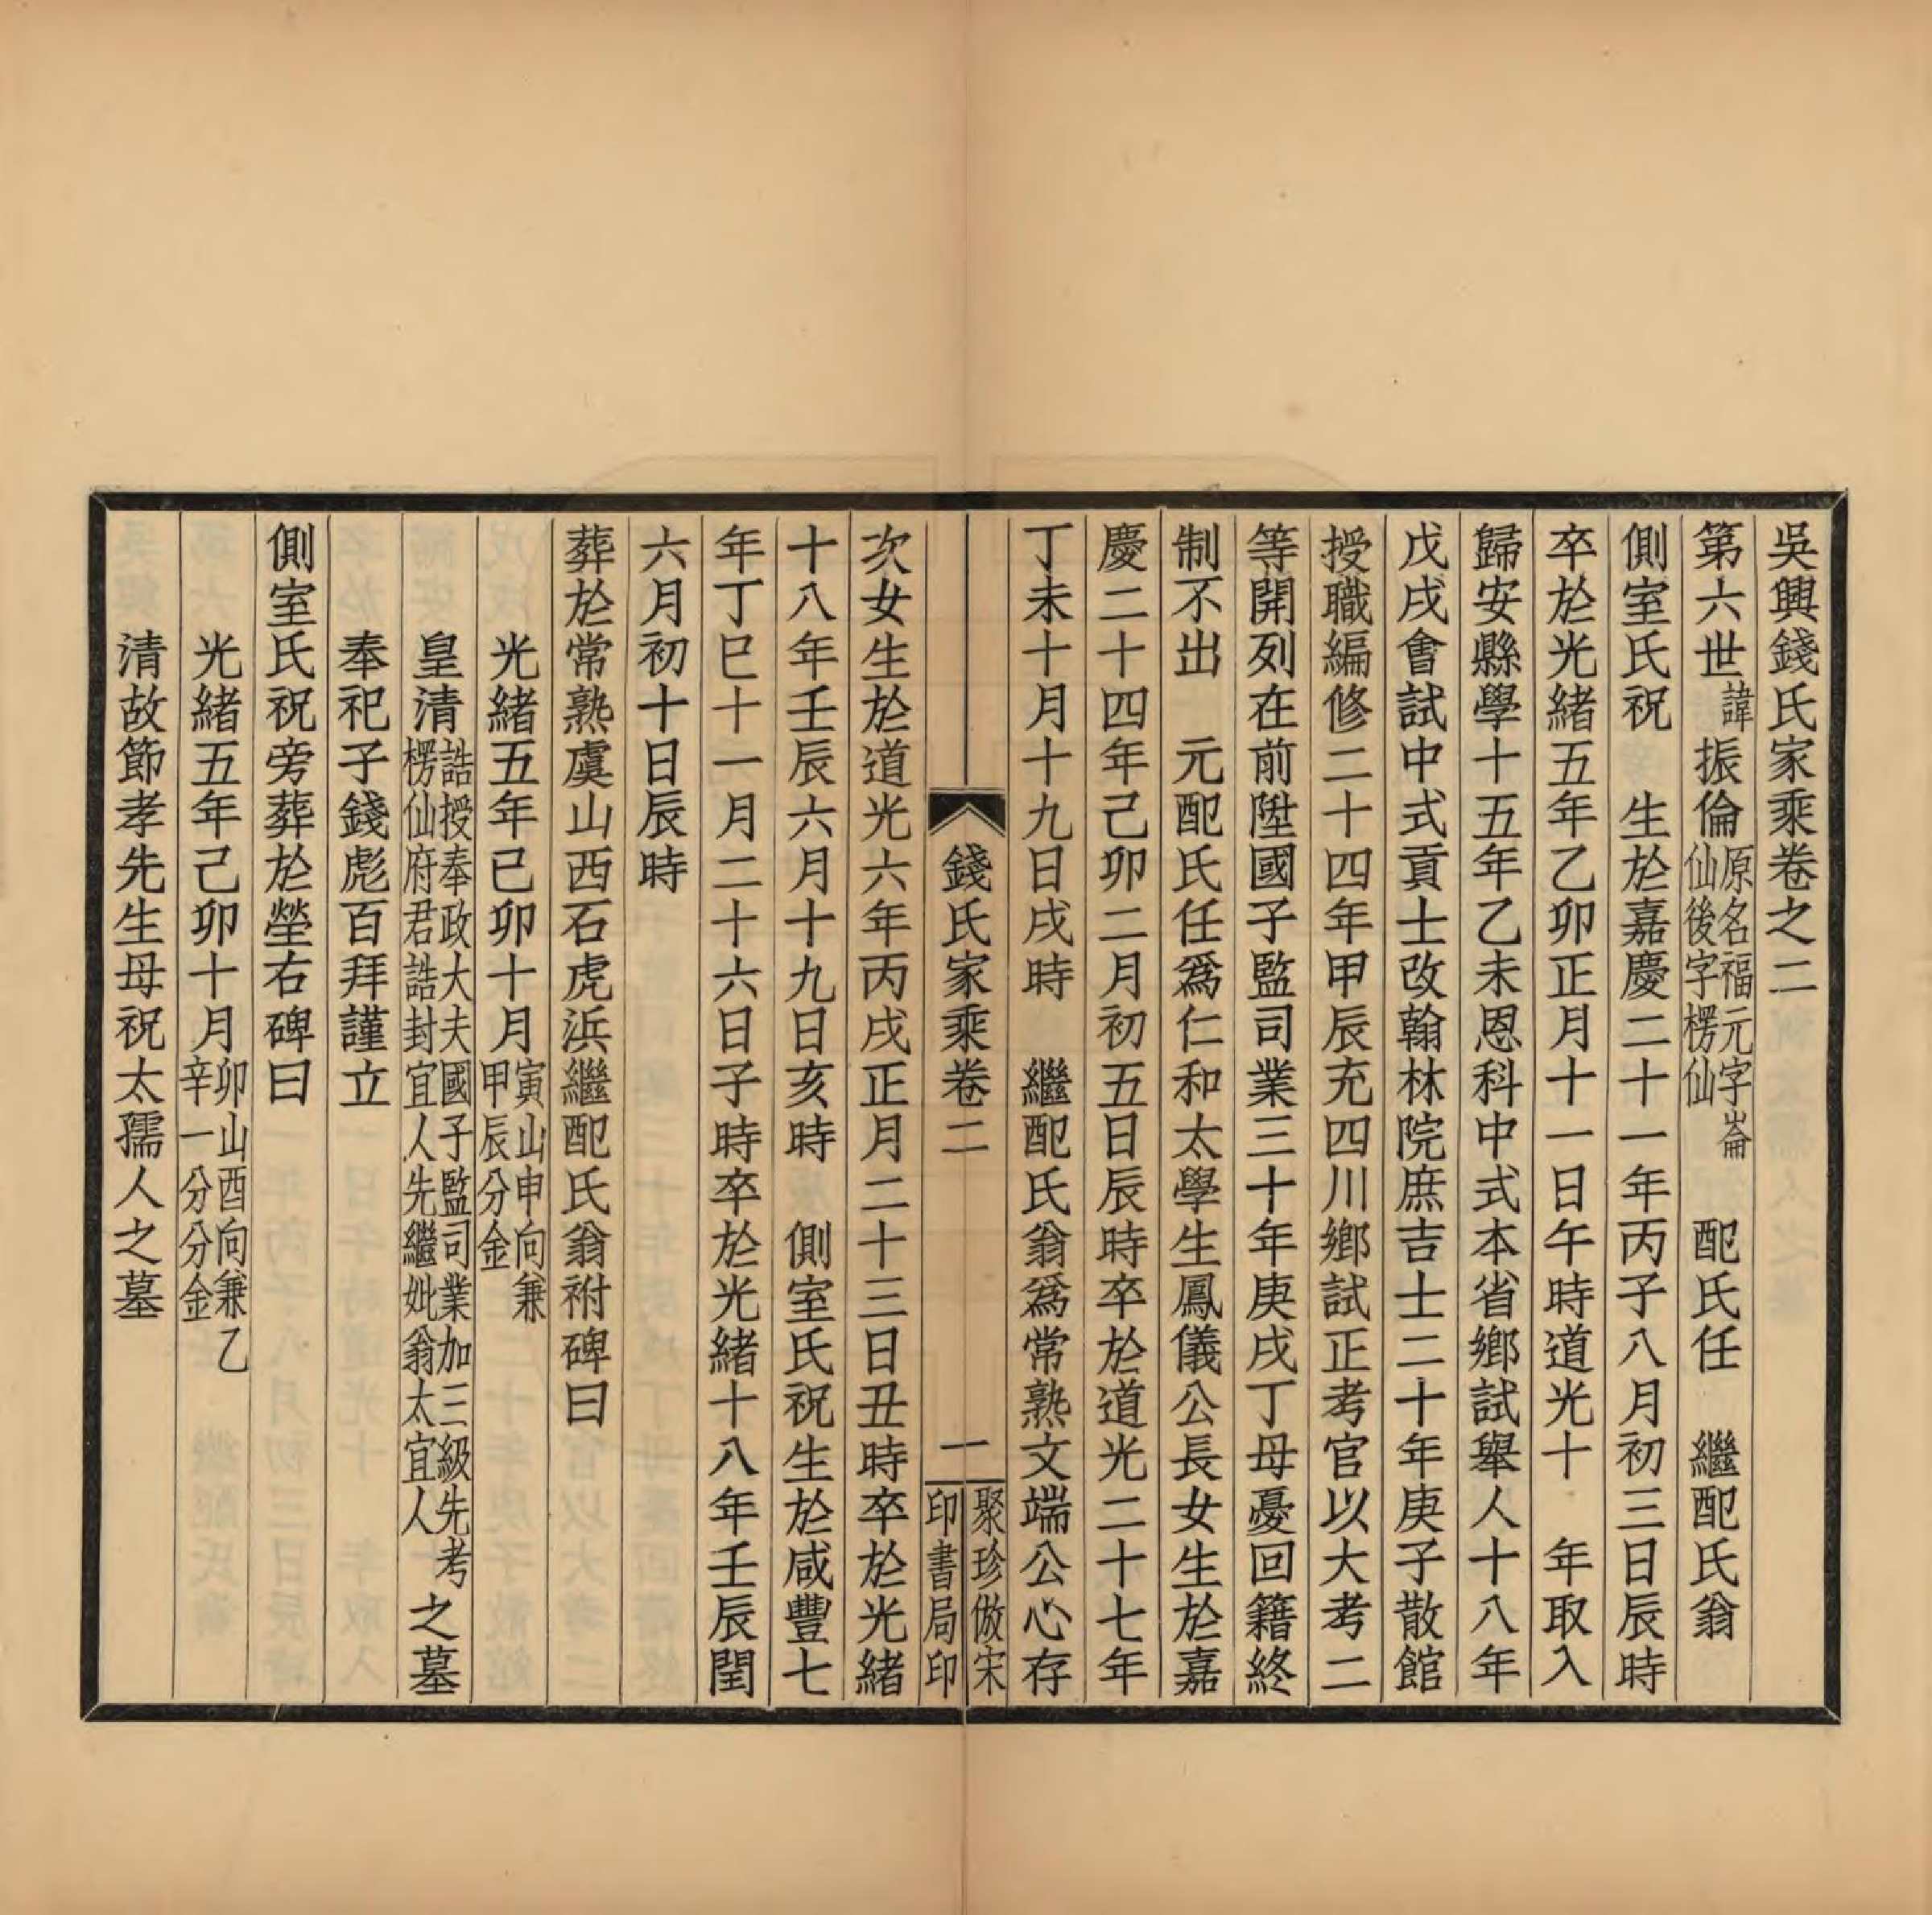 吳興錢氏家乘卷之二
第六世諱振倫原名福元字崙仙後字楞仙　配氏任　繼配氏翁
側室氏祝　生於嘉慶二十一年丙子八月初三日辰時
卒於光緒五年乙卯正月十一日午時道光十　年取入
歸安縣學十五年乙未恩科中式本省鄉試舉人十八年
戊戌會試中式貢士改翰林院庶吉士二十年庚子散館
授職編修二十四年甲辰充四川鄉試正考官以大考二
等開列在前陞國子監司業三十年庚戌丁母憂回籍終
制不出　元配氏任爲仁和太學生鳳儀公長女生於嘉
慶二十四年己卯二月初五日辰時卒於道光二十七年
丁未十月十九日戌時　繼配氏翁爲常熟文端公心存
錢氏家乘卷二　一　聚珍倣宋印書局印
次女生於道光六年丙戌正月二十三日丑時卒於光緒
十八年壬辰六月十九日亥時　側室氏祝生於咸豐七
年丁巳十一月二十六日子時卒於光緒十八年壬辰閏
六月初十日辰時
葬於常熟虞山西石虎浜繼配氏翁祔碑曰
光緒五年已卯十月寅山申向兼甲辰分金
皇清誥授奉政大夫國子監司業加三級先考楞仙府君誥封宜人先繼妣翁太宜人之墓
奉祀子錢彪百拜謹立
側室氏祝旁葬於塋右碑曰
光緒五年己卯十月卯山酉向兼乙辛一分分金
清故節孝先生母祝太孺人之墓